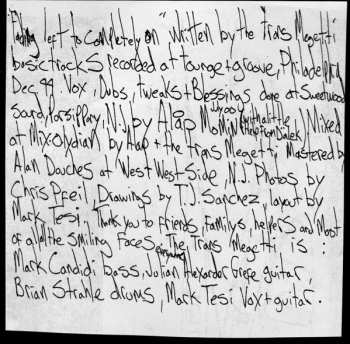 Fading left to completely on" Written by the Trans Megetti
basic tracks recorded at Lounge + groove, Philadelphia
Dec 99. Vox, Dubs, tweaks + Blessings done at Sweetwood
sound, Parsippany, N.J. by Alap Momin (with a little help from Dalek) Mixed
at Mix-olydian by Alap + the trans Megetti Mastered by
Alan Douches at West West Side, N.J. Photos by
Chris Pfeil Drawings by T.J. Sanchez, layout by
Mark Tesi. Thank you to friends, familys, helpers and Most
of all the smiling faces everywhere The Trans Megetti is :
Mark Candidi bass, Julian Alexander Grefe guitar,
Brian Strahle drums, Mark Tesi Vox + guitar.